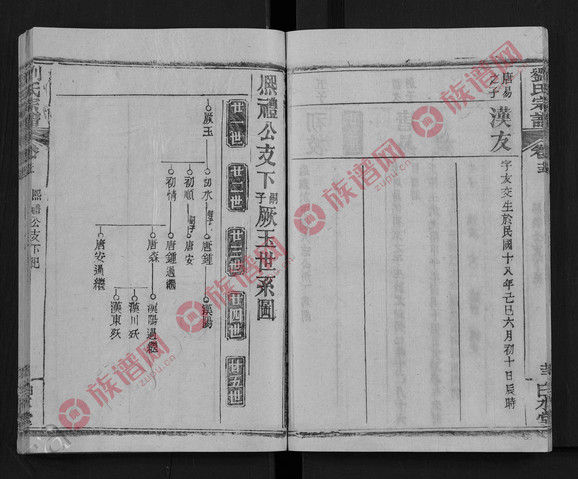 劉氏宗譜
唐易之子
漢友
字友交生於民國十八年己巳六月初十日辰時
熙禮公支下嗣子厥玉世系圖
廿一世
廿二世
廿三世
廿四世
廿五世
厥玉
初水
唐鍾
漢陽
初順
唐安
初情
唐鍾過繼
唐森
漢陽過繼
漢川殀
漢東殀
唐安過繼
熙禮公支下
族谱网
zupu.cn